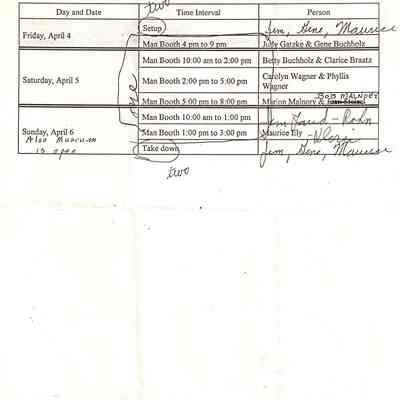 two
Day and Date Time Interval Person
Friday, April 4 Setup Jim, Gene, Maurice
Man Booth 4 pm to 9 pm Judy Gatzke & Gene Buchholz
Saturday, April 5 Man Booth 10:00 am to 2:00 pm Betty Buchholz & Clarice Braatz
Man Booth 2:00 pm to 5:00 pm Carolyn Wagner & Phyllis
Wagner
BOB MALNORY
Man Booth 5:00 pm to 8:00 pm Marion Malnory &
one
Sunday, April 6 Man Booth 10:00 am to 1:00 pm Jim
Also Museum Man Booth 1:00 pm to 3:00 pm Maurice
is open Take down Jim, Gene, Maurice
two